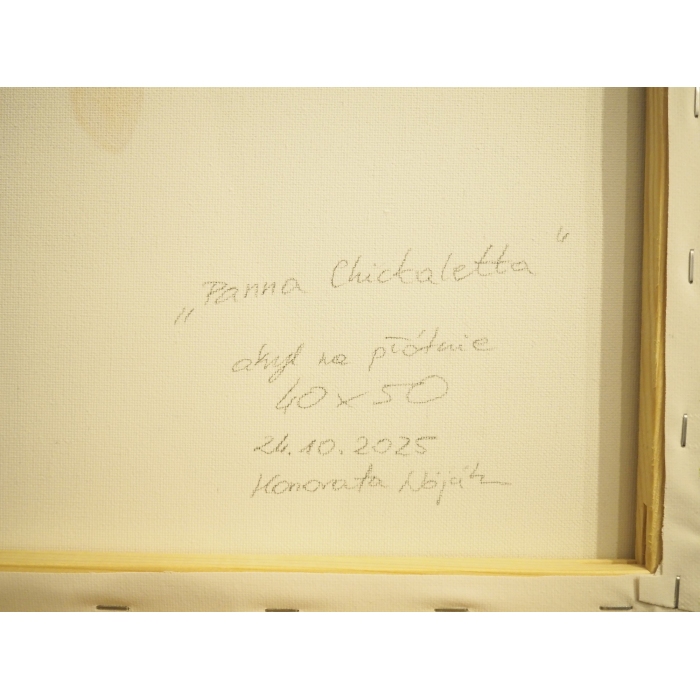 „Panna Chickaletta"
akryl na płótnie
40x50
24.10.2025
Honorata